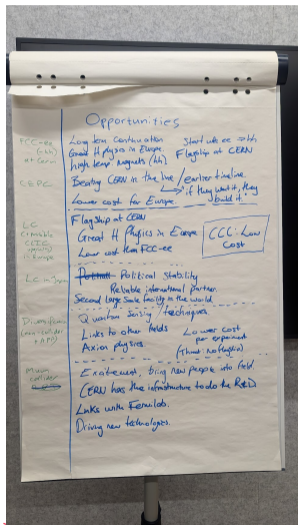 Opportunities
FCC-ee
(+hh)
at Cern
Long term continuation
Start with ee → hh
Great H physics in Europe.
Flagship at CERN
High temp magnets (hh)
CEPC
Beating CERN in the line / earlier timeline
if they want it, they
build it.
Lower cost for Europe.
LC
in Europe
Flagship at CERN
Great H Physics in Europe
Lower cost than FCC-ee
CCC: Low
Cost
LC in Japan
Political stability
Reliable international partner.
Second large scale facility in the world
Quantum Sensing / techniques.
Links to other fields
Axion physics.
Lower cost
per experiment
(Threat: No flagship)
Muon
collider
Excitement, bring new people into field.
CERN has the infrastructure to do the R&D
Links with Fermilab.
Driving new technologies.